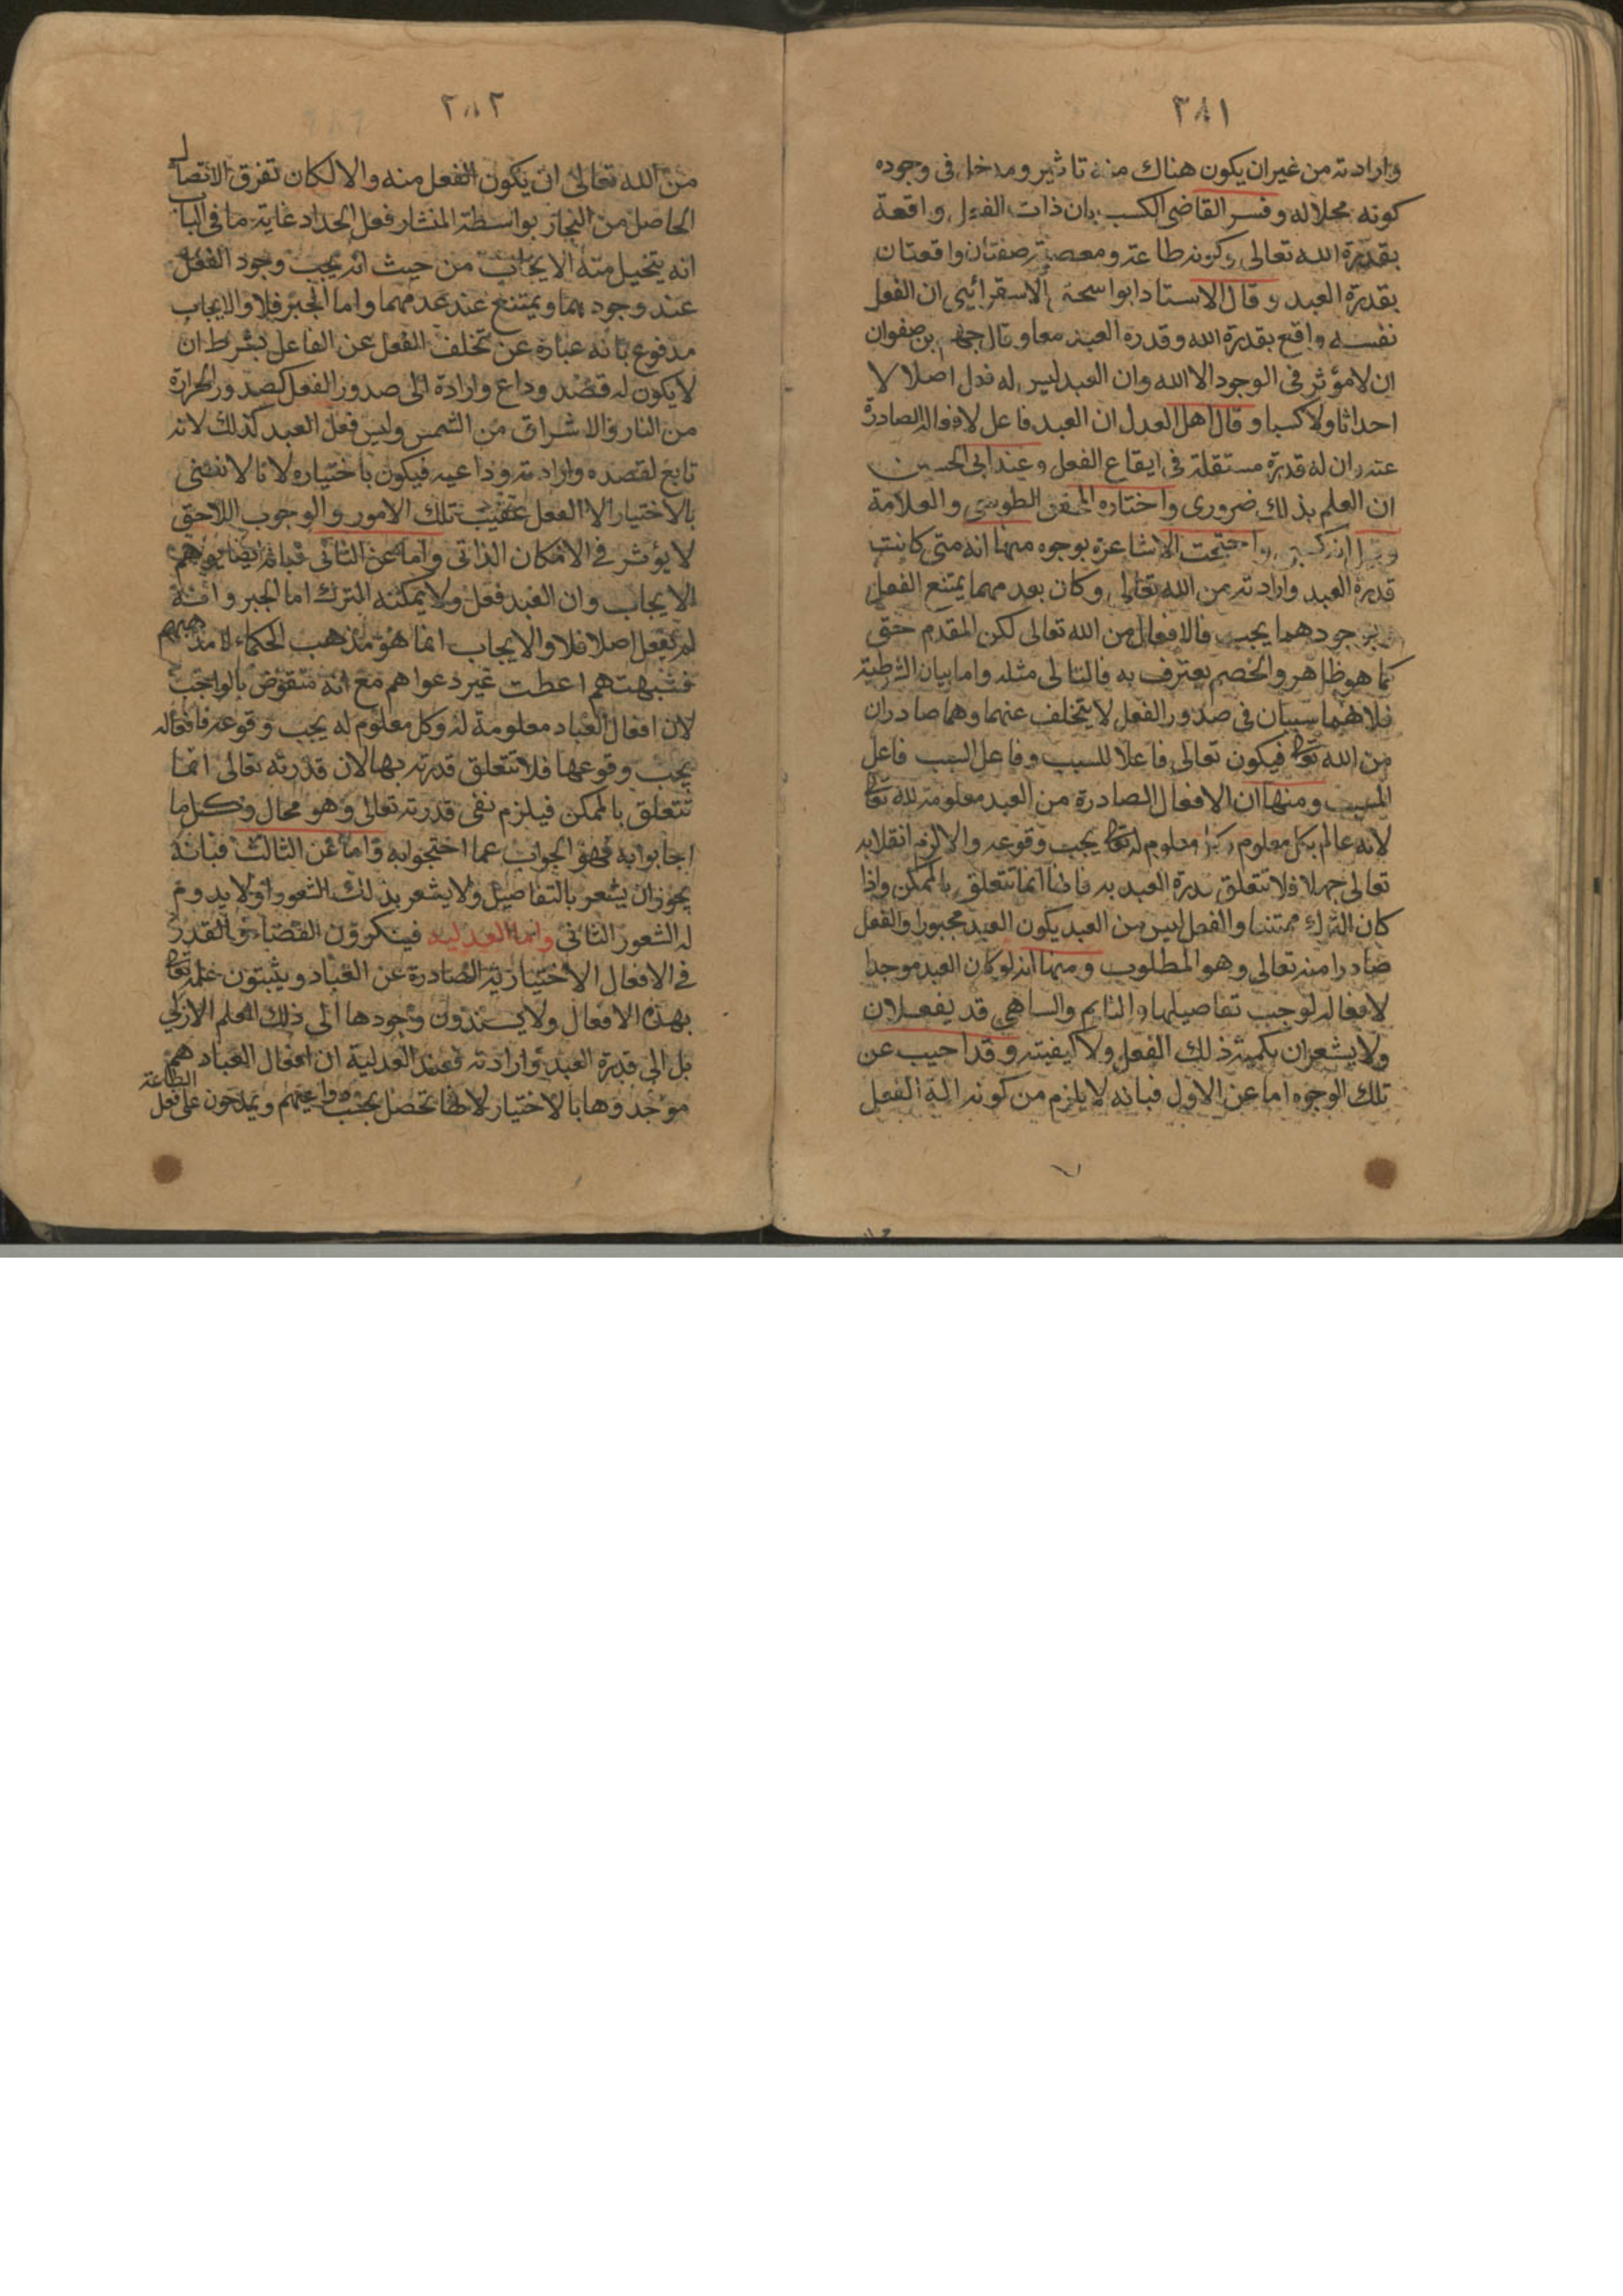 ٢٨١
وارادته من غير ان يكون هناك منه تاثير ومدخل فى وجوده
كونه محلا له وفسر القاضى الكسب بان ذات الفعل واقعة
بقدرة الله تعالى وكونه طاعة ومعصية صفتان واقعتان
بقدرة العبد وقال الاستاد ابو اسحق الاسفرائينى ان الفعل
نفسه واقع بقدرة الله وقدرة العبد معا وقال جهم بن صفوان
ان لا مؤثر فى الوجود الا الله وان العبد ليس له فعل اصلا لا
احداثا ولا كسبا وقال اهل العدل ان العبد فاعل لافعاله الصادرة
عنه وان له قدرة مستقلة فى ايقاع الفعل وعند ابى الحسين
ان العلم بذلك ضرورى واختاره المحقق الطوسى والعلامة
احتجت الاشاعرة بوجوه منها انه متى كانت
قدرة العبد وارادته من الله تعالى وكان بعدمهما يمتنع الفعل
وبوجودهما يجب فالافعال من الله تعالى لكن المقدم حق
كما هو ظاهر والخصم يعترف به فالتالى مثله واما بيان الشرطية
فلانهما سببان فى صدور الفعل لا يتخلف عنهما وهما صادران
من الله تعالى فيكون تعالى فاعلا للسبب وفاعل السبب فاعل
المسبب ومنها ان الافعال الصادرة من العبد معلومة لله تعالى
لانه عالم بكل معلوم وكل معلوم له تعالى يجب وقوعه والا لزم انقلابه
تعالى جهلا فلا تتعلق قدرة العبد به فانها انما تتعلق بالممكن واذا
كان الترك ممتنعا والفعل ليس من العبد يكون العبد مجبورا والفعل
صادرا منه تعالى وهو المطلوب ومنها انه لو كان العبد موجدا
لافعاله لوجب تفاصيلها والنايم والساهى قد يفعلان
ولا يشعران بكمية ذلك الفعل ولا كيفيته وقد اجيب عن
تلك الوجوه اما عن الاول فبانه لا يلزم من كونه الة الفعل
٢٨٢
من الله تعالى ان يكون الفعل منه والا لكان تفرق الاتصال
الحاصل من النجار بواسطة المنشار فعل الحداد غاية ما فى الباب
انه يتخيل منه الايجاب من حيث انه يجب وجود الفعل
عند وجودهما ويمتنع عند عدمهما واما الجبر فلا والايجاب
مدفوع بانه عبارة عن تخلف الفعل عن الفاعل بشرط ان
لا يكون له قصد وداع وارادة الى صدور الفعل كصدور الحرارة
من النار والاشراق من الشمس وليس فعل العبد كذلك لانه
تابع لقصده وارادته وداعيه فيكون باختياره لانا لا نعنى
بالاختيار الا الفعل عقيب تلك الامور والوجوب اللاحق
لا يؤثر فى الامكان الذاتى واما عن الثانى فبانه ايضا يوهم
الايجاب وان العبد فعل ولا يمكنه الترك اما الجبر وانه
لم يفعل اصلا فلا والايجاب انما هو مذهب الحكماء لا مذهبهم
فشبهتهم اعطت غير دعواهم مع انه منقوض بالواجب
لان افعال العباد معلومة له وكل معلوم له يجب وقوعه فافعاله
يجب وقوعها فلا تتعلق قدرته بها لان قدرته تعالى انما
تتعلق بالممكن فيلزم نفى قدرته تعالى وهو محال وكل ما
اجابوا به فهو الجواب عما احتجوا به واما عن الثالث فبانه
يجوز ان يشعر بالتفاصيل ولا يشعر بذلك الشعور او لا يدوم
له الشعور الثانى واما العدلية فينكرون القضاء والقدر
فى الافعال الاختيارية الصادرة عن العباد ويثبتون علمه تعالى
بهذه الافعال ولا يسندون وجودها الى ذلك العلم الازلى
بل الى قدرة العبد وارادته فعند العدلية ان افعال العباد هم
موجدوها بالاختيار لانها تحصل بحسب دواعيهم ويمدحون على فعل الطاعة